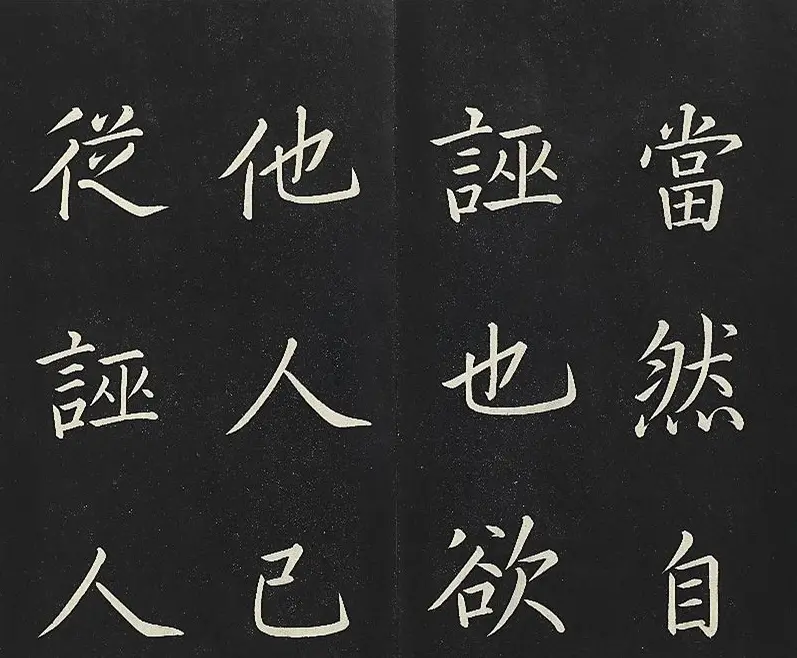 當然自
誣也欲
他人己
從誣人